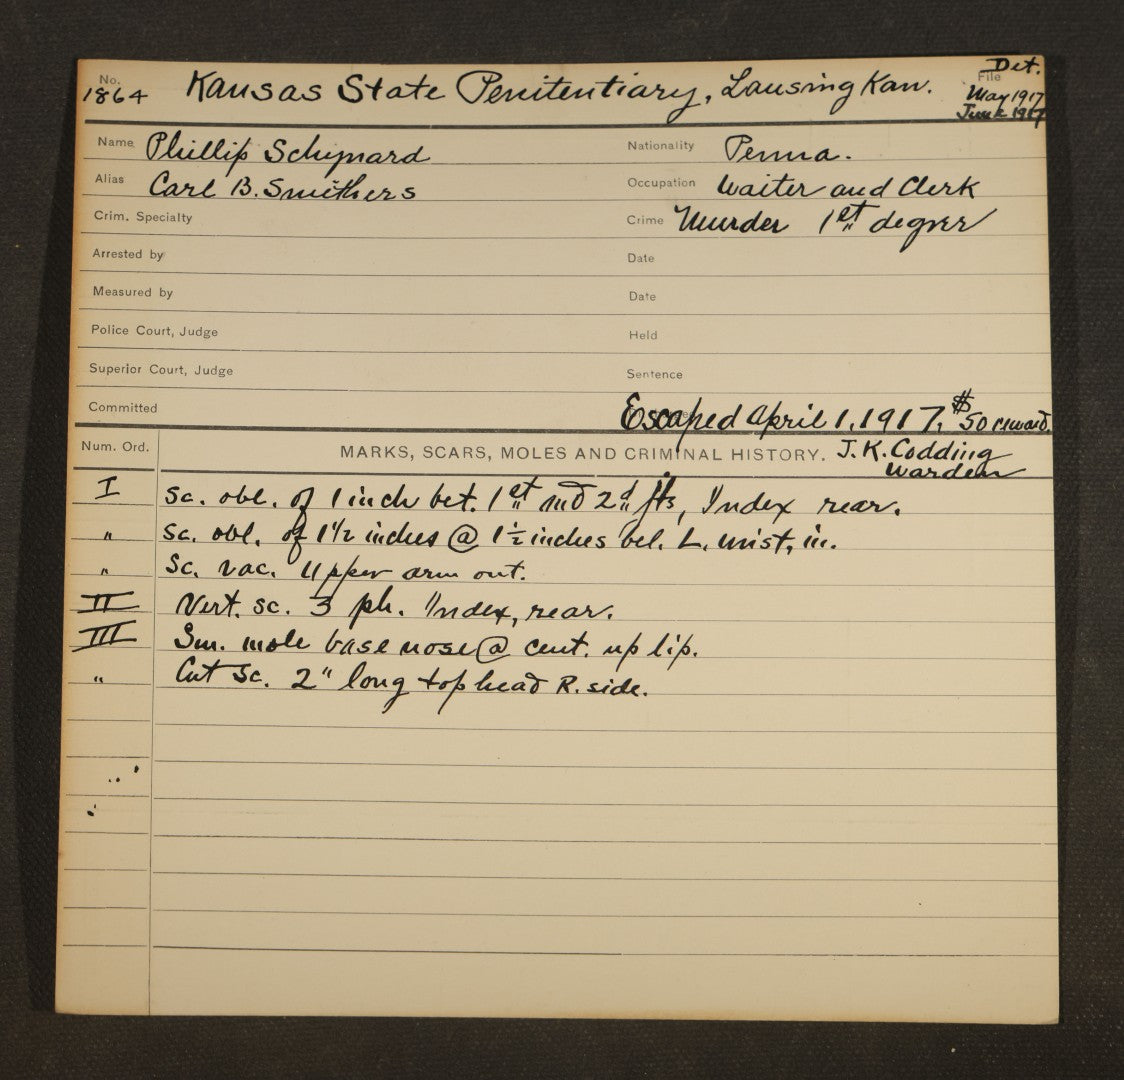 No. Kansas State Penitentiary, Lansing Kan. File Det.
1864 May 1917
June 1917
Name Phillip Schynard Nationality Penna.
Alias Carl B. Smithers Occupation Waiter and Clerk
Crim. Specialty Crime Murder 1st degree
Arrested by Date
Measured by Date
Police Court, Judge Held
Superior Court, Judge Sentence
Committed Escaped April 1, 1917, $50 reward.
Num. Ord. MARKS, SCARS, MOLES AND CRIMINAL HISTORY. J. K. Codding
Warden
I Sc. obl. of 1 inch bet. 1st and 2d Index rear.
" Sc. obl. of 1 1/2 inches @ 1 1/2 inches bel. L. wrist, in.
" Sc. vac. Upper arm out.
II Vert. sc. 3 ph. Index, rear.
III Sm. mole base nose @ cent. up lip.
" Cut Sc. 2" long top head R. side.